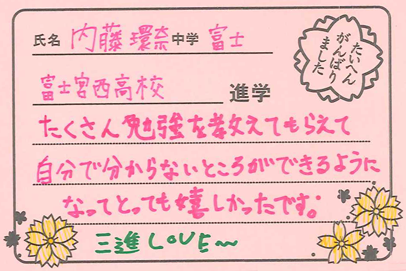 氏名 内藤環奈中学 富士
富士宮西高校 進学
たくさん勉強を教えてもらえて
自分で分からないところができるように
なってとっても嬉しかったです。
三進LOVE〜
たいへん
がんばり
ました